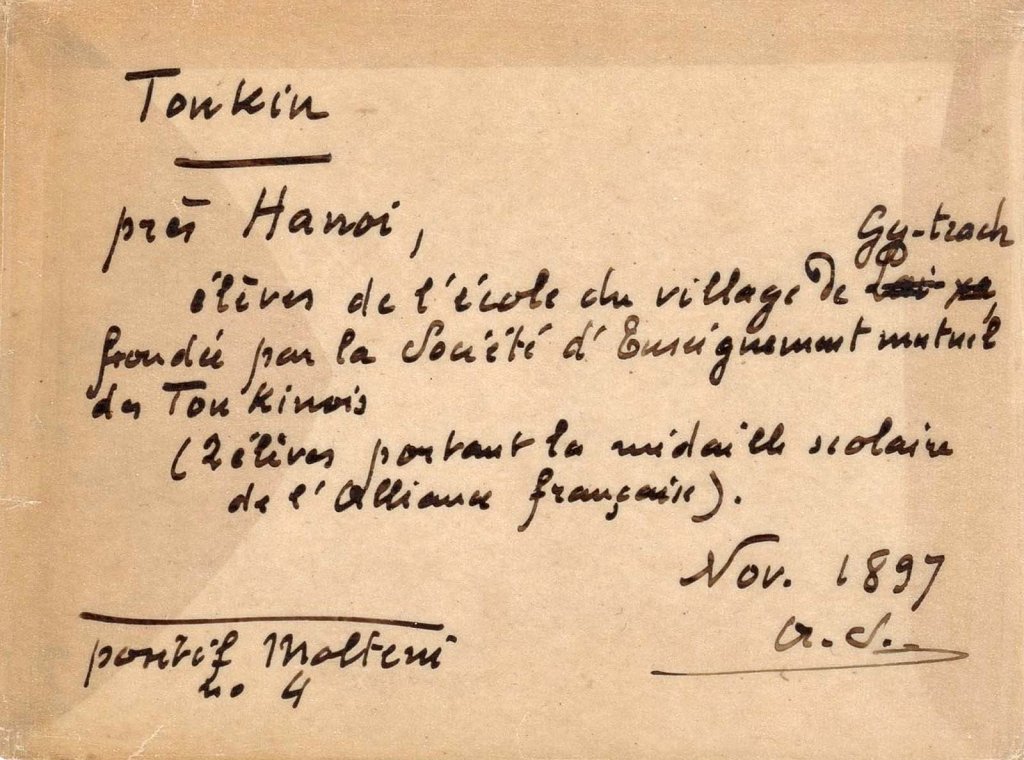 Tonkin
près Hanoi,
Gy-trach
élèves de l'école du village de
fondée par la Société d'Enseignement mutuel
des Tonkinois
(2 élèves portant la médaille scolaire
de l'Alliance française).
Nov. 1897
A.S.
positif Molteni
no 4